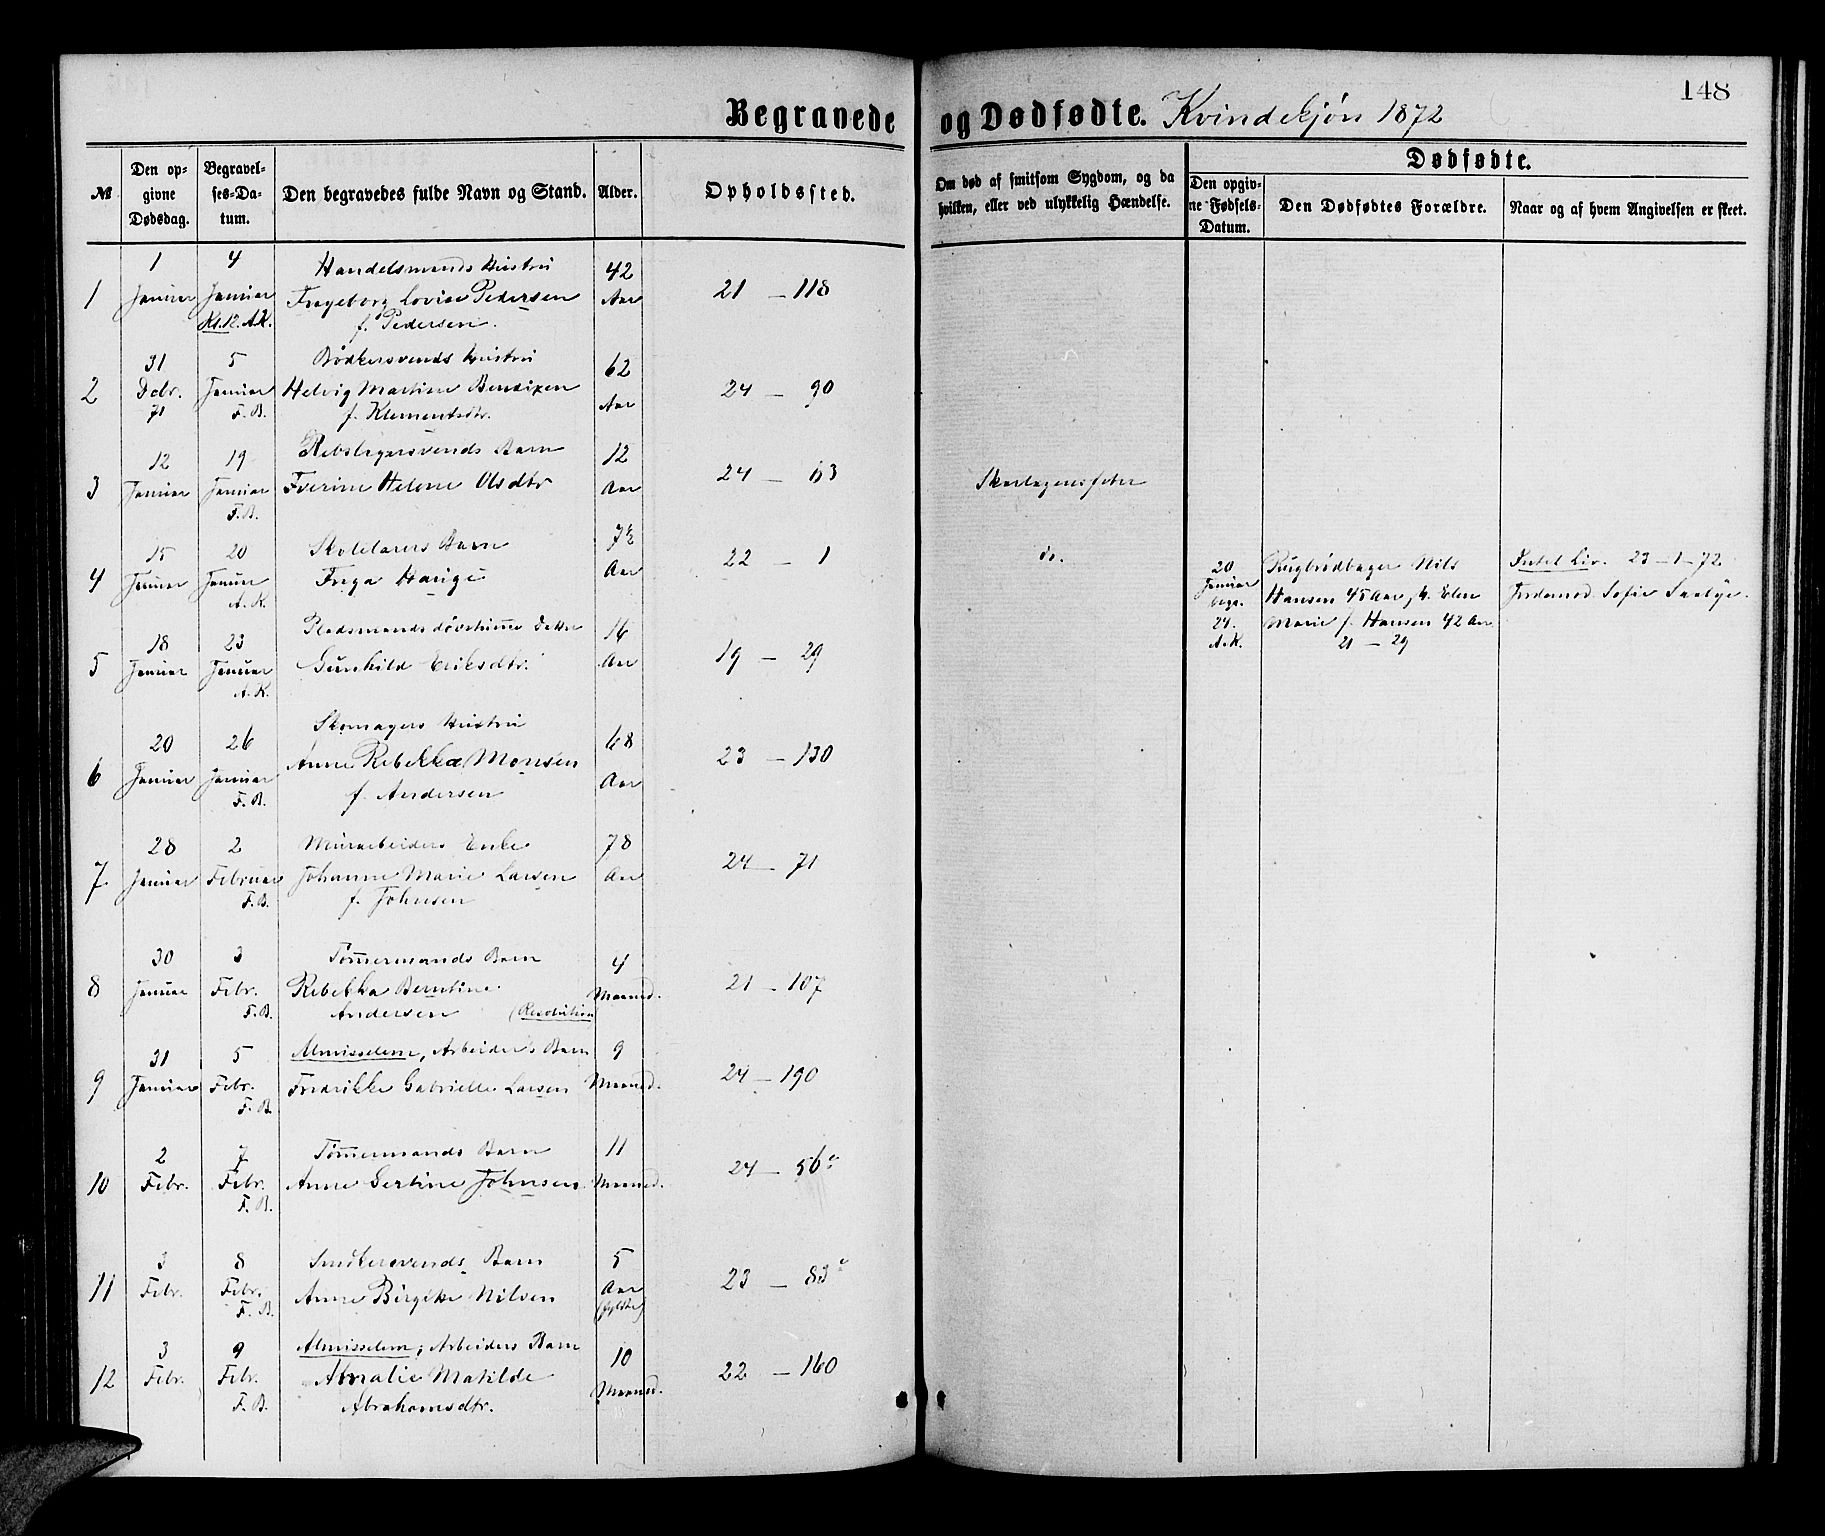 148
Begravede og Dødfødte. Kvindekjøn 1872
№
Den opgivne Dødsdag.
Begravelses-Datum.
Den begravedes fulde Navn og Stand.
Alder.
Opholdssted.
Om død af smitsom Sygdom, og da hvilken, eller ved ulykkelig Hændelse.
Dødfødte.
Den opgivne Fødsels-Datum.
Den Dødfødtes Forældre.
Naar og af hvem Angivelsen er skeet.
1 4 Handelsmands Hustru 42
1 Januar Januar Ingeborg Lovise Pedersen Aar 21 – 118
Kl. 12. A.K. f. Pedersen.
31 5 Bødkersvends Hustru 62
2 Dcbr. Januar Helvig Martine Bendixen 24 – 90
71 F.B. f. Klementsdtr. Aar
12 19 Rebslagersvends Barn 12
3 Januar Januar Iverine Helene Olsdtr Aar 24 – 63 Skarlagensfeber
F.B.
15 20 Skolelærers Barn 7½
4 Januar Januar Inga Hauge Aar 22 – 1 do.
A.K.
20 Januar begr. 24. A.K.
Rugbrødbager Nils
Hansen 45 Aar, h. Elen
Marie f. Hansen 42 Aar
21 – 29
Intet Liv. 23-1-72
Jordemod. Sofie Saebye.
18 23 Pladsmands døvstumme Datter 16
5 Januar Januar Gunhild Eriksdtr. Aar 19 – 29
A.K.
20 26 Skomagers Hustru 68
6 Januar Januar Anne Rebekka Monsen Aar 23 – 130
F.B. f. Andersen
28 2 Murarbeiders Enke 78
7 Januar Februar Johanne Marie Larsen Aar 24 – 71
F.B. f. Johnsen
30 3 Tømmermands Barn 4
8 Januar Febr. Rebekka Berntine Maaned. 21 – 107
F.B. Andersen (Resolution
31 5 Almisselem, Arbeider's Barn 9
9 Januar Febr. Fredrikke Gabrielle Larsen Maaned. 24 – 190
F.B.
2 7 Tømmermands Barn 11
10 Febr. Febr. Anne Gertine Johnsen Maaned. 24 – 56
F.B.
3 8 Barn 5
11 Febr. Febr. Anne Birgitte Nilsen Aar 23 – 83
F.B. (fyldte)
3 9 Almisselem, Arbeiders Barn 10
12 Febr. Febr. Amalie Matilde Maaned. 22 – 160
F.B. Abrahamsdtr.